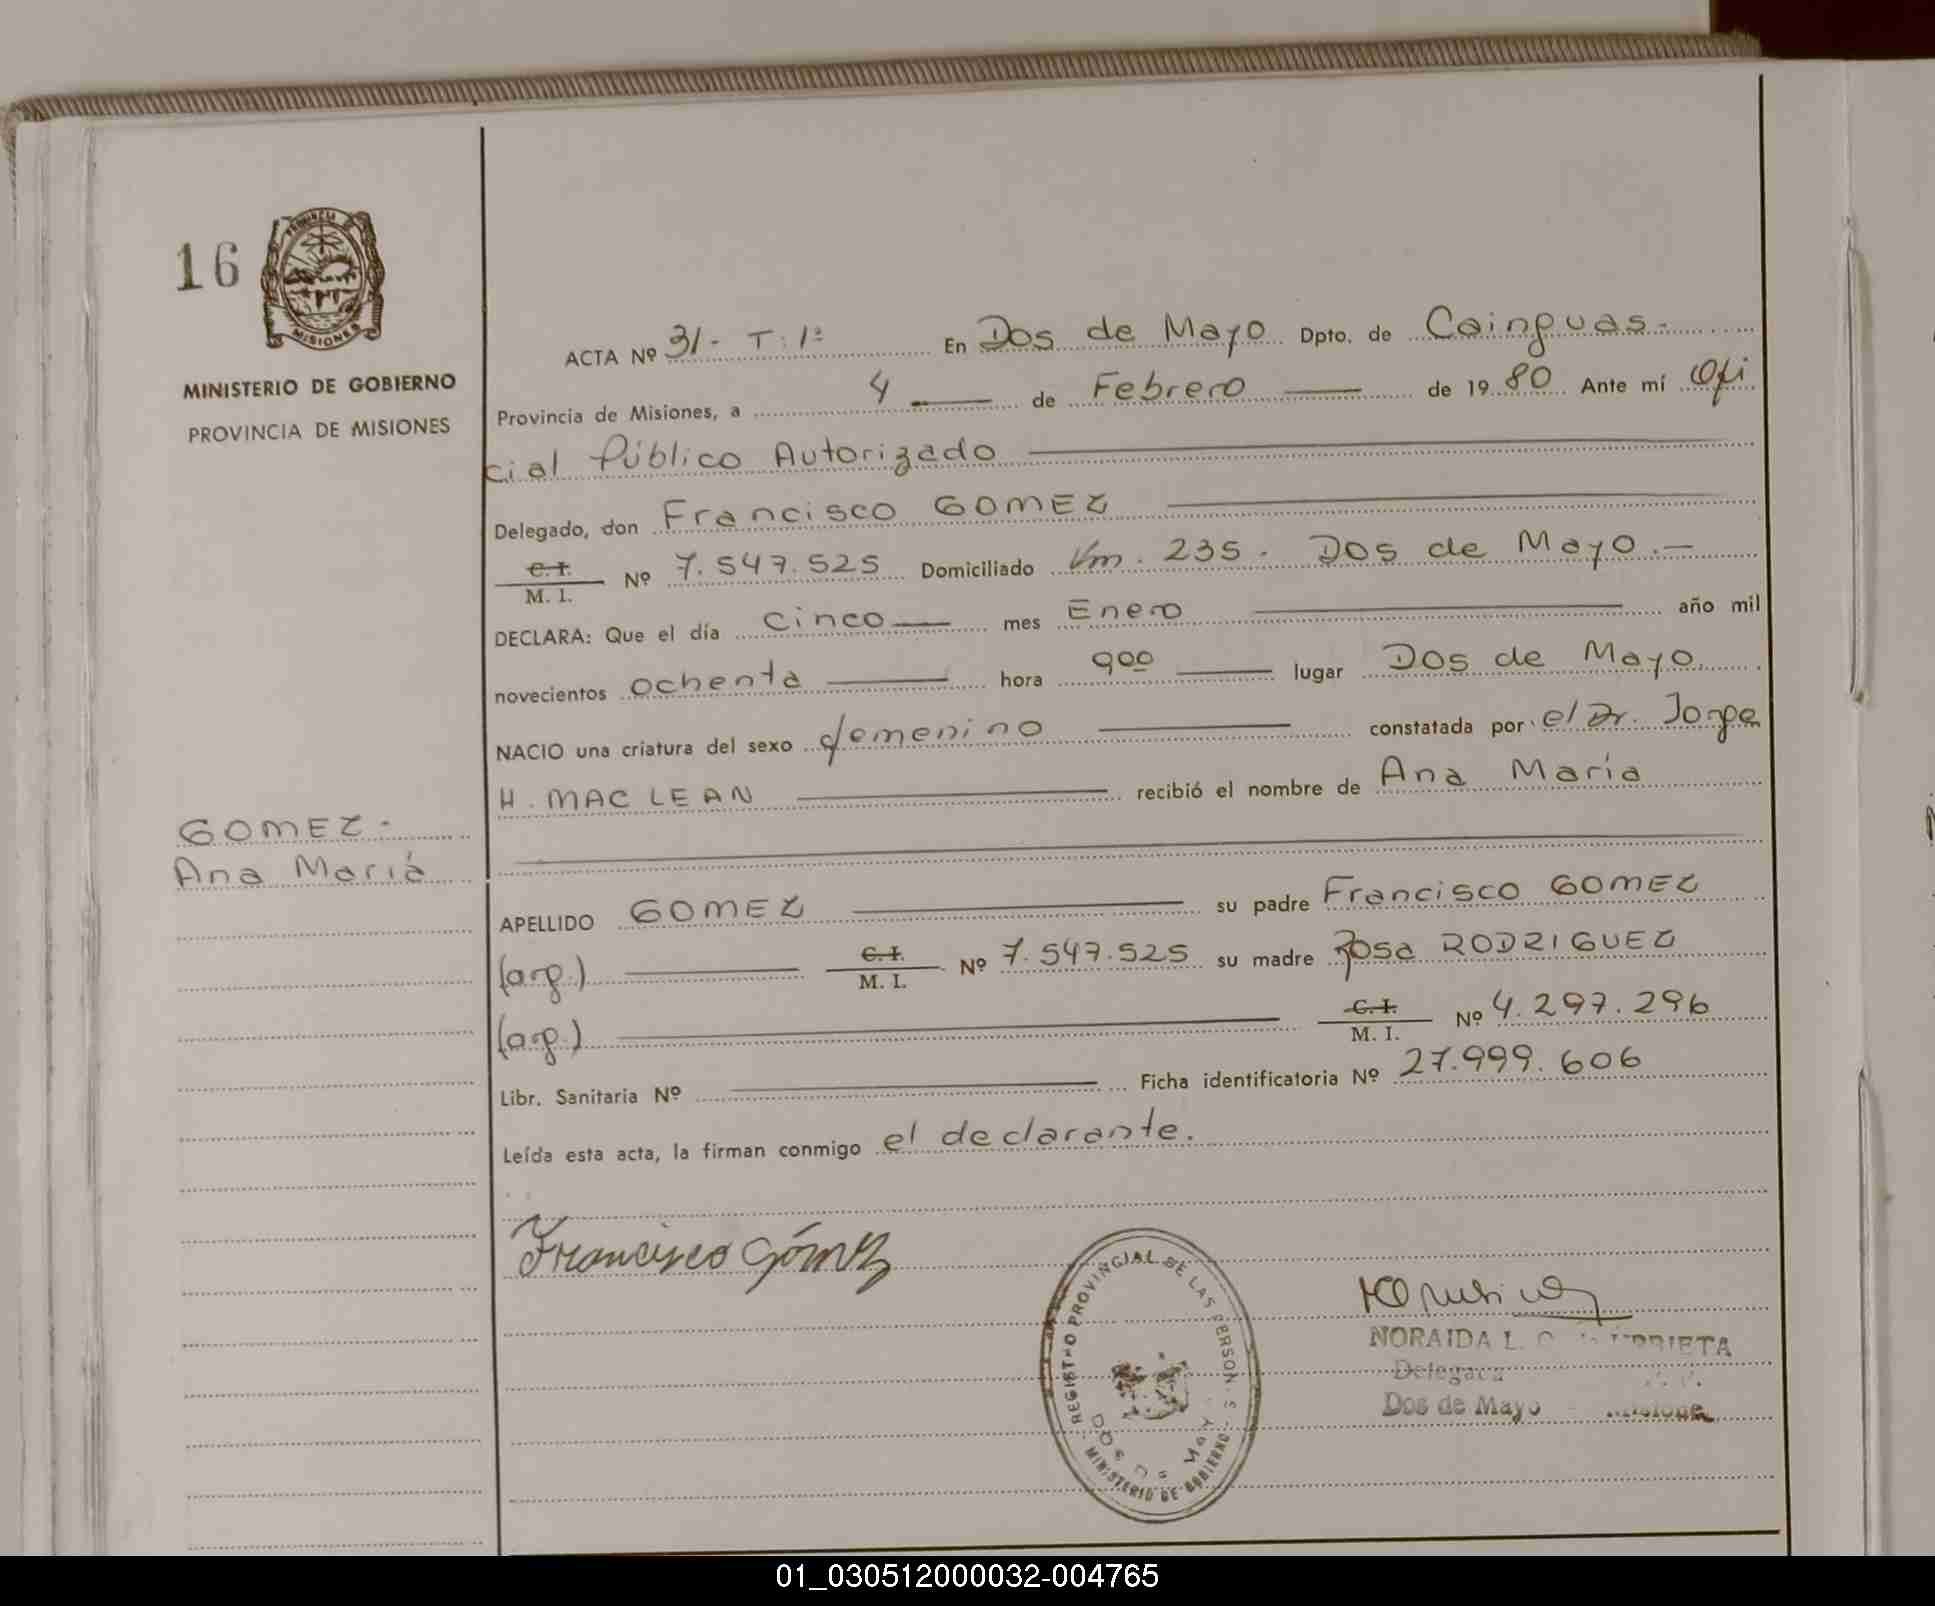 16
PROVINCIA
MISIONES
MINISTERIO DE GOBIERNO
PROVINCIA DE MISIONES
ACTA Nº 31- T: 1º En Dos de Mayo Dpto. de Cainguas.-
Provincia de Misiones, a 4 de Febrero de 1980 Ante mí Ofi
cial Público Autorizado
Delegado, don Francisco GOMEZ
C. I.
M. I. Nº 7.547.525 Domiciliado Km. 235. Dos de Mayo.-
DECLARA: Que el día cinco mes Enero año mil
novecientos ochenta hora 900 lugar Dos de Mayo.
NACIO una criatura del sexo femenino constatada por el Dr. Jorge
H. MAC LEAN recibió el nombre de Ana María
GOMEZ-
Ana María
APELLIDO GOMEZ su padre Francisco GOMEZ
(arg.) C. I.
M. I. Nº 7.547.525 su madre Rosa RODRIGUEZ
(arg.) C. I.
M. I. Nº 4.297.296
Libr. Sanitaria Nº Ficha identificatoria Nº 27.999.606
Leída esta acta, la firman conmigo el declarante.
Francisco Gómez
REGISTRO PROVINCIAL DE LAS PERSON S
MINISTERIO DE GOBIERNO
DOS DE MAY
NORAIDA L.
Delegada
Dos de Mayo - Misiones
01_030512000032-004765